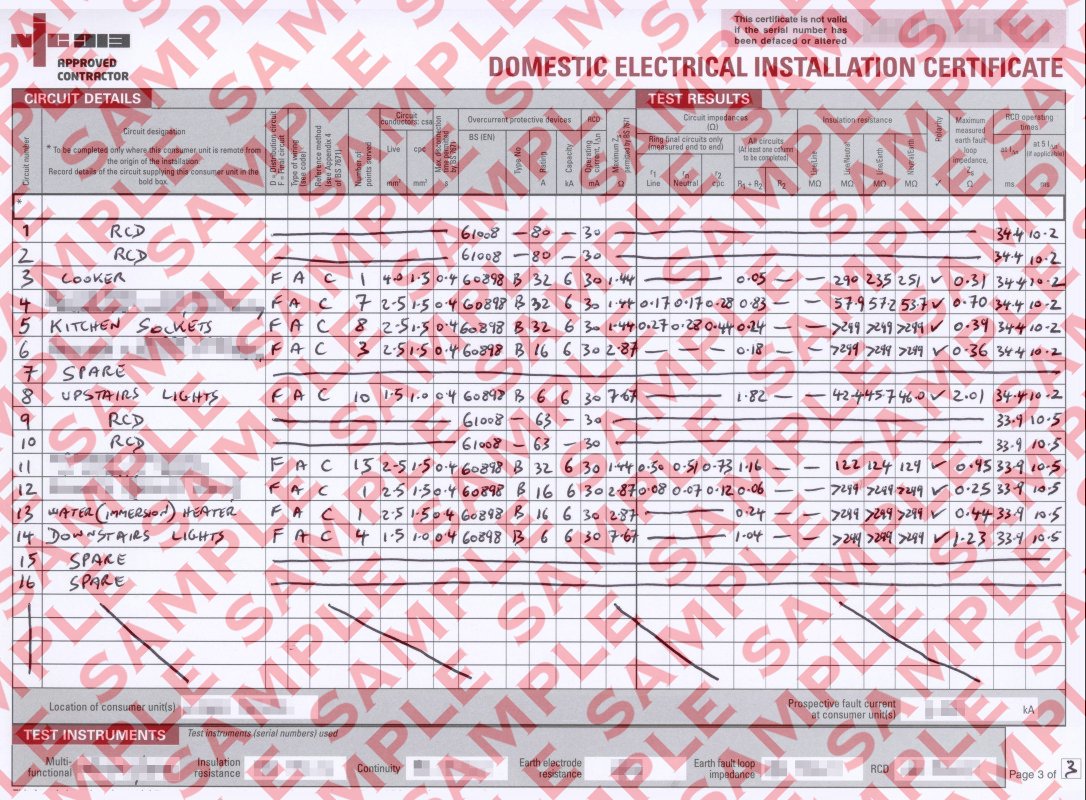 NIC EIC
APPROVED
CONTRACTOR
This certificate is not valid
if the serial number has
been defaced or altered
DOMESTIC ELECTRICAL INSTALLATION CERTIFICATE
CIRCUIT DETAILS
TEST RESULTS
Circuit number
Circuit designation
* To be completed only where this consumer unit is remote
from the origin of the installation.
Record details of the circuit supplying this consumer unit in the
bold box.
D = Distribution circuit
F = Final circuit
Type of wiring
(see code)
Reference method
(see Appendix 4
of BS 7671)
Number of
points served
Circuit
conductors: csa
Live
mm²
cpc
mm²
Max. disconnection
time permitted
by BS 7671
s
Overcurrent protective devices
BS (EN)
Type No
Rating
A
Capacity
kA
RCD
Operating
current, IΔn
mA
Maximum Zs
permitted by BS 7671
Ω
Circuit impedances
(Ω)
Ring final circuits only
(measured end to end)
r1
Line
rn
Neutral
r2
cpc
All circuits
(At least one column
to be completed)
R1 + R2
R2
Insulation resistance
Line/Line
MΩ
Line/Neutral
MΩ
Line/Earth
MΩ
Neutral/Earth
MΩ
Polarity
✓
Maximum
measured
earth fault
loop
impedance,
Zs
Ω
RCD operating
times
at IΔn
ms
at 5 IΔn
(if applicable)
ms
*
1 RCD 61008 – 80 – 30 34.4 10.2
2 RCD 61008 – 80 – 30 34.4 10.2
3 COOKER F A C 1 4.0 1.5 0.4 60898 B 32 6 30 1.44 — 0.05 — — 290 235 251 ✓ 0.31 34.4 10.2
4 F A C 7 2.5 1.5 0.4 60898 B 32 6 30 1.44 0.17 0.17 0.28 0.83 — — 57.9 57.2 53.7 ✓ 0.70 34.4 10.2
5 KITCHEN SOCKETS F A C 8 2.5 1.5 0.4 60898 B 32 6 30 1.44 0.27 0.28 0.44 0.24 — — >299 >299 >299 ✓ 0.39 34.4 10.2
6 F A C 3 2.5 1.5 0.4 60898 B 16 6 30 2.87 — — — 0.18 — — >299 >299 >299 ✓ 0.36 34.4 10.2
7 SPARE
8 UPSTAIRS LIGHTS F A C 10 1.5 1.0 0.4 60898 B 6 6 30 7.67 — 1.82 — — 42.4 45.7 46.0 ✓ 2.01 34.4 10.2
9 RCD 61008 – 63 – 30 33.9 10.5
10 RCD 61008 – 63 – 30 33.9 10.5
11 F A C 15 2.5 1.5 0.4 60898 B 32 6 30 1.44 0.50 0.51 0.73 1.16 — — 122 124 129 ✓ 0.95 33.9 10.5
12 F A C 1 2.5 1.5 0.4 60898 B 16 6 30 2.87 0.08 0.07 0.12 0.06 — — >299 >299 >299 ✓ 0.25 33.9 10.5
13 WATER (IMMERSION) HEATER F A C 1 2.5 1.5 0.4 60898 B 16 6 30 2.87 — 0.24 — — >299 >299 >299 ✓ 0.44 33.9 10.5
14 DOWNSTAIRS LIGHTS F A C 4 1.5 1.0 0.4 60898 B 6 6 30 7.67 — 1.04 — — >299 >299 >299 ✓ 1.23 33.9 10.5
15 SPARE
16 SPARE
Location of consumer unit(s)
Prospective fault current
at consumer unit(s)
kA
TEST INSTRUMENTS
Test instruments (serial numbers) used
Multi-
functional
Insulation
resistance
Continuity
Earth electrode
resistance
Earth fault loop
impedance
RCD
Page 3 of 3
SAMPLE